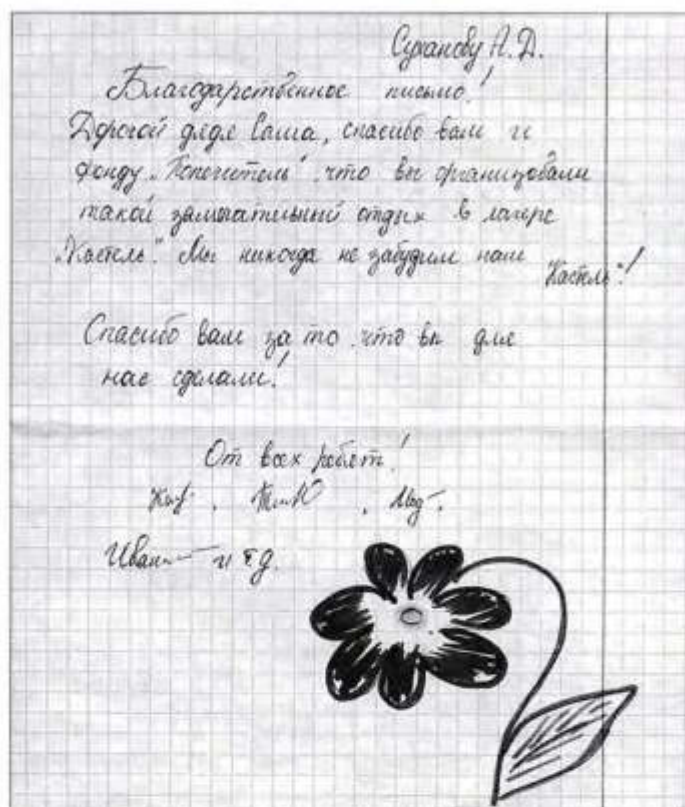 Суханову А.Д.
Благодарственное письмо!
Дорогой дядя Саша, спасибо вам и
фонду „Попечитель" что вы организовали
такой замечательный отдых в лагере
„Кастель". Мы никогда не забудим наш
"Кастель"!
Спасибо вам за то, что вы для
нас сделали!
От всех ребят!
и т.д.